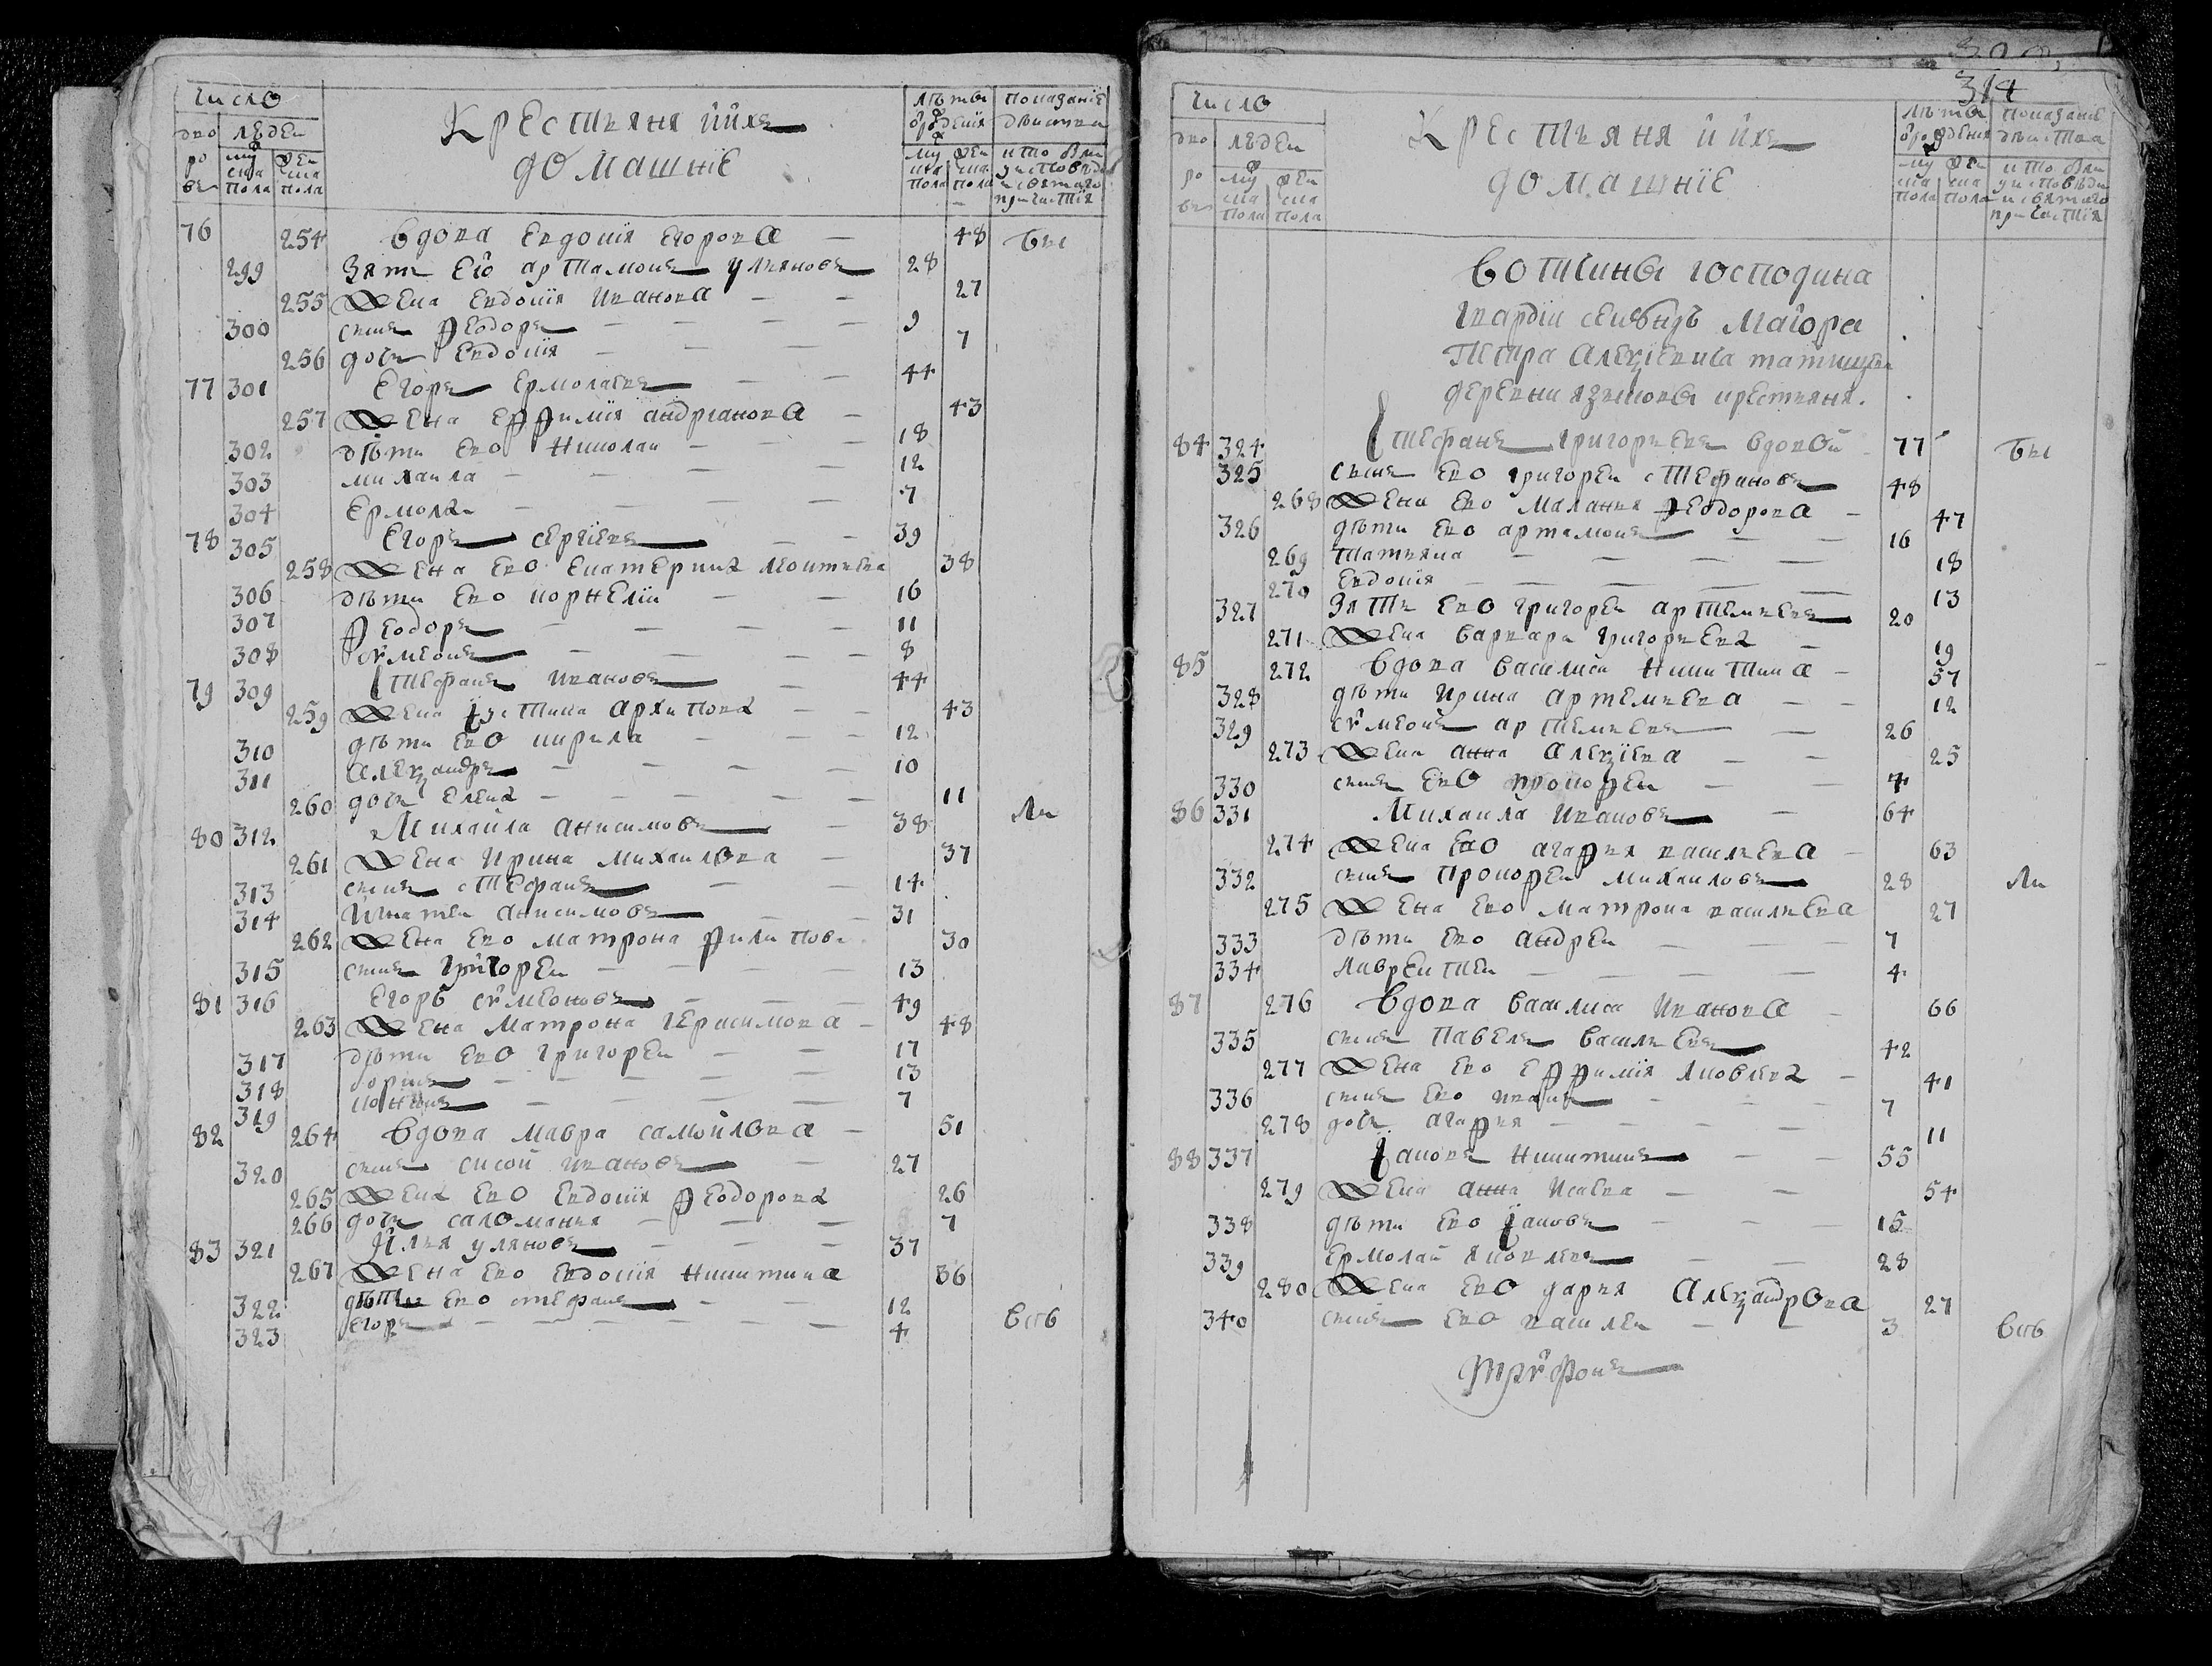 число
дво ро въ
людеи
муска пола
женска пола
Крестьяня ййхъ
домашнїе
лѣта ѿрожденїя
муска пола
женска пола
показанїе дѣиства
и кто былъ у исповѣди и святаго причастїя
76 254 вдова Евдокїя Егорова — 48 бы
299 Зять Его артамонъ ульяновъ 28
255 Жена Евдокїя Иванова — — 27
300 сынъ Феодоръ — — — — 9
256 дочь Евдокїя — — — 7
77 301 Егоръ Ермолаевъ — — 44
257 Жена Еффимїя андрїанова — 43
302 дѣти Ево Николаи — — — 18
303 михаила — — — — 12
304 Ермолаи — — — — 7
78 305 Егоръ сергїевъ — — 39
258 Жена Ево Екатерина Леонтьева 38
306 дѣти Ево корнелїи — — 16
307 Феодоръ — — — — 11
308 сѵмеонъ — — — — 8
79 309 Стефанъ Ивановъ — 44
259 Жена устина архипова — — 43
310 дѣти Ево кирила — — — 12
311 Алеѯандръ — — — — 10
260 дочь Елена — — — — — 11
80 312 Михайла анисимовъ — 38 Ли
261 Жена Ирина михаилова — 37
313 сынъ стефанъ — — 14
314 Игнатеи анисимовъ — — 31
262 Жена Ево матрона филипова 30
315 сынъ григореи — — — 13
81 316 Егоръ сѵмеоновъ — — — 49
263 Жена Матрона герасимова — 48
317 дѣти Ево григореи — — 17
318 борисъ — — — — — 13
319 кононъ — — — — — 7
82 264 вдова мавра самойлова — 51
320 сынъ сисой ивановъ — 27
265 Жена Ево Евдокїя Феодорова 26
266 дочь саломания — — — 7
83 321 Илья уляновъ — — — 37
267 Жена Ево Евдокїя Никитина 36
322 дѣти Ево стефанъ — — 12
323 Егоръ — — — — — — 4 всѣ
314
число
дво ро въ
людеи
муска пола
женска пола
Крестьяня ййхъ
домашнїе
лѣта ѿрожденїя
муска пола
женска пола
показанїе дѣиства
и кто былъ у исповѣди и святаго причастїя
вотчины господина
гвардїи секундъ маиора
Петра Алеѯїевича татищева
деревни языковы крестьяня.
84 324 Стефанъ григорьевъ вдовой 77 бы
325 сынъ Ево григореи стефановъ 48
268 Жена Ево маланья Феодорова — 47
326 дѣти Ево артамонъ — — 16
269 татьяна — — — — 18
270 Евдокїя — — — — 13
327 Зять Ево григореи артемьевъ 20
271 Жена варвара григорьева — 19
85 272 вдова василиса Никитина — 57
328 дѣти Ирина артемьева — — 12
329 сѵмеонъ артемьевъ — 26
273 Жена анна Алеѯїева — — 25
330 сынъ Ево прокофеи — — 4
86 331 Михаила Ивановъ — 64
274 Жена Ево агафия васильева — 63
332 сынъ Прокофеи михаиловъ 28 Ли
275 Жена Ево матрона васильева 27
333 дѣти Ево андреи — — — 7
334 лаврентеи — — — — 4
87 276 вдова василиса Иванова — 66
335 сынъ павелъ васильевъ 42
277 Жена Ево Еффимїя яковлева — 41
336 сынъ Ево иванъ — — — 7
278 дочь агафия — — — — 11
88 337 яковъ Никитинъ — — 55
279 Жена анна Исаева — — 54
338 дѣти Ево яковъ — — — 15
339 Ермолай яковлевъ — — 28
280 Жена Ево дария Алеѯандрова 27
340 сынъ Ево василеи — — 3 всѣ
трѵфонъ